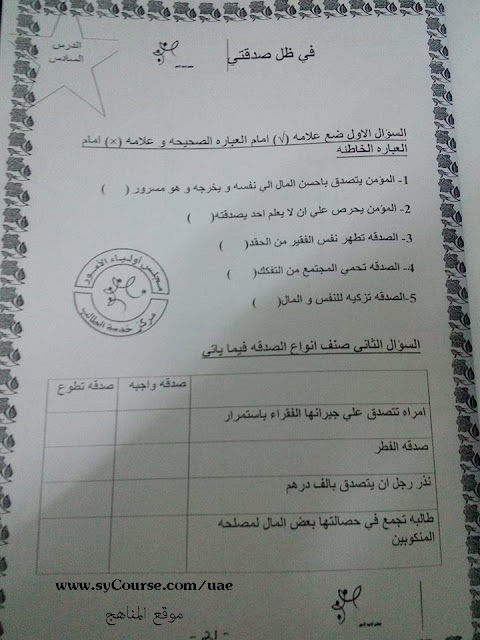 الدرس
السادس
في ظل صدقتي
السؤال الاول ضع علامه (√) امام العباره الصحيحه و علامه (×) امام
العباره الخاطئه
1- المؤمن يتصدق باحسن المال الي نفسه و يخرجه و هو مسرور ( )
2- المؤمن يحرص علي ان لا يعلم احد بصدقته( )
3- الصدقه تطهر نفس الفقير من الحقد( )
4- الصدقه تحمي المجتمع من التفكك( )
5-الصدقه تزكيه للنفس و المال( )
مجلس اولياء الأمور
مركز خدمة الطالب
السؤال الثاني صنف انواع الصدقه فيما ياتي
صدقه واجبه صدقه تطوع
امراه تتصدق علي جيرانها الفقراء باستمرار
صدقه الفطر
نذر رجل ان يتصدق بالف درهم
طالبه تجمع في حصالتها بعض المال لمصلحه
المنكوبين
www.syCourse.com/uae
موقع المناهج
- 21 -